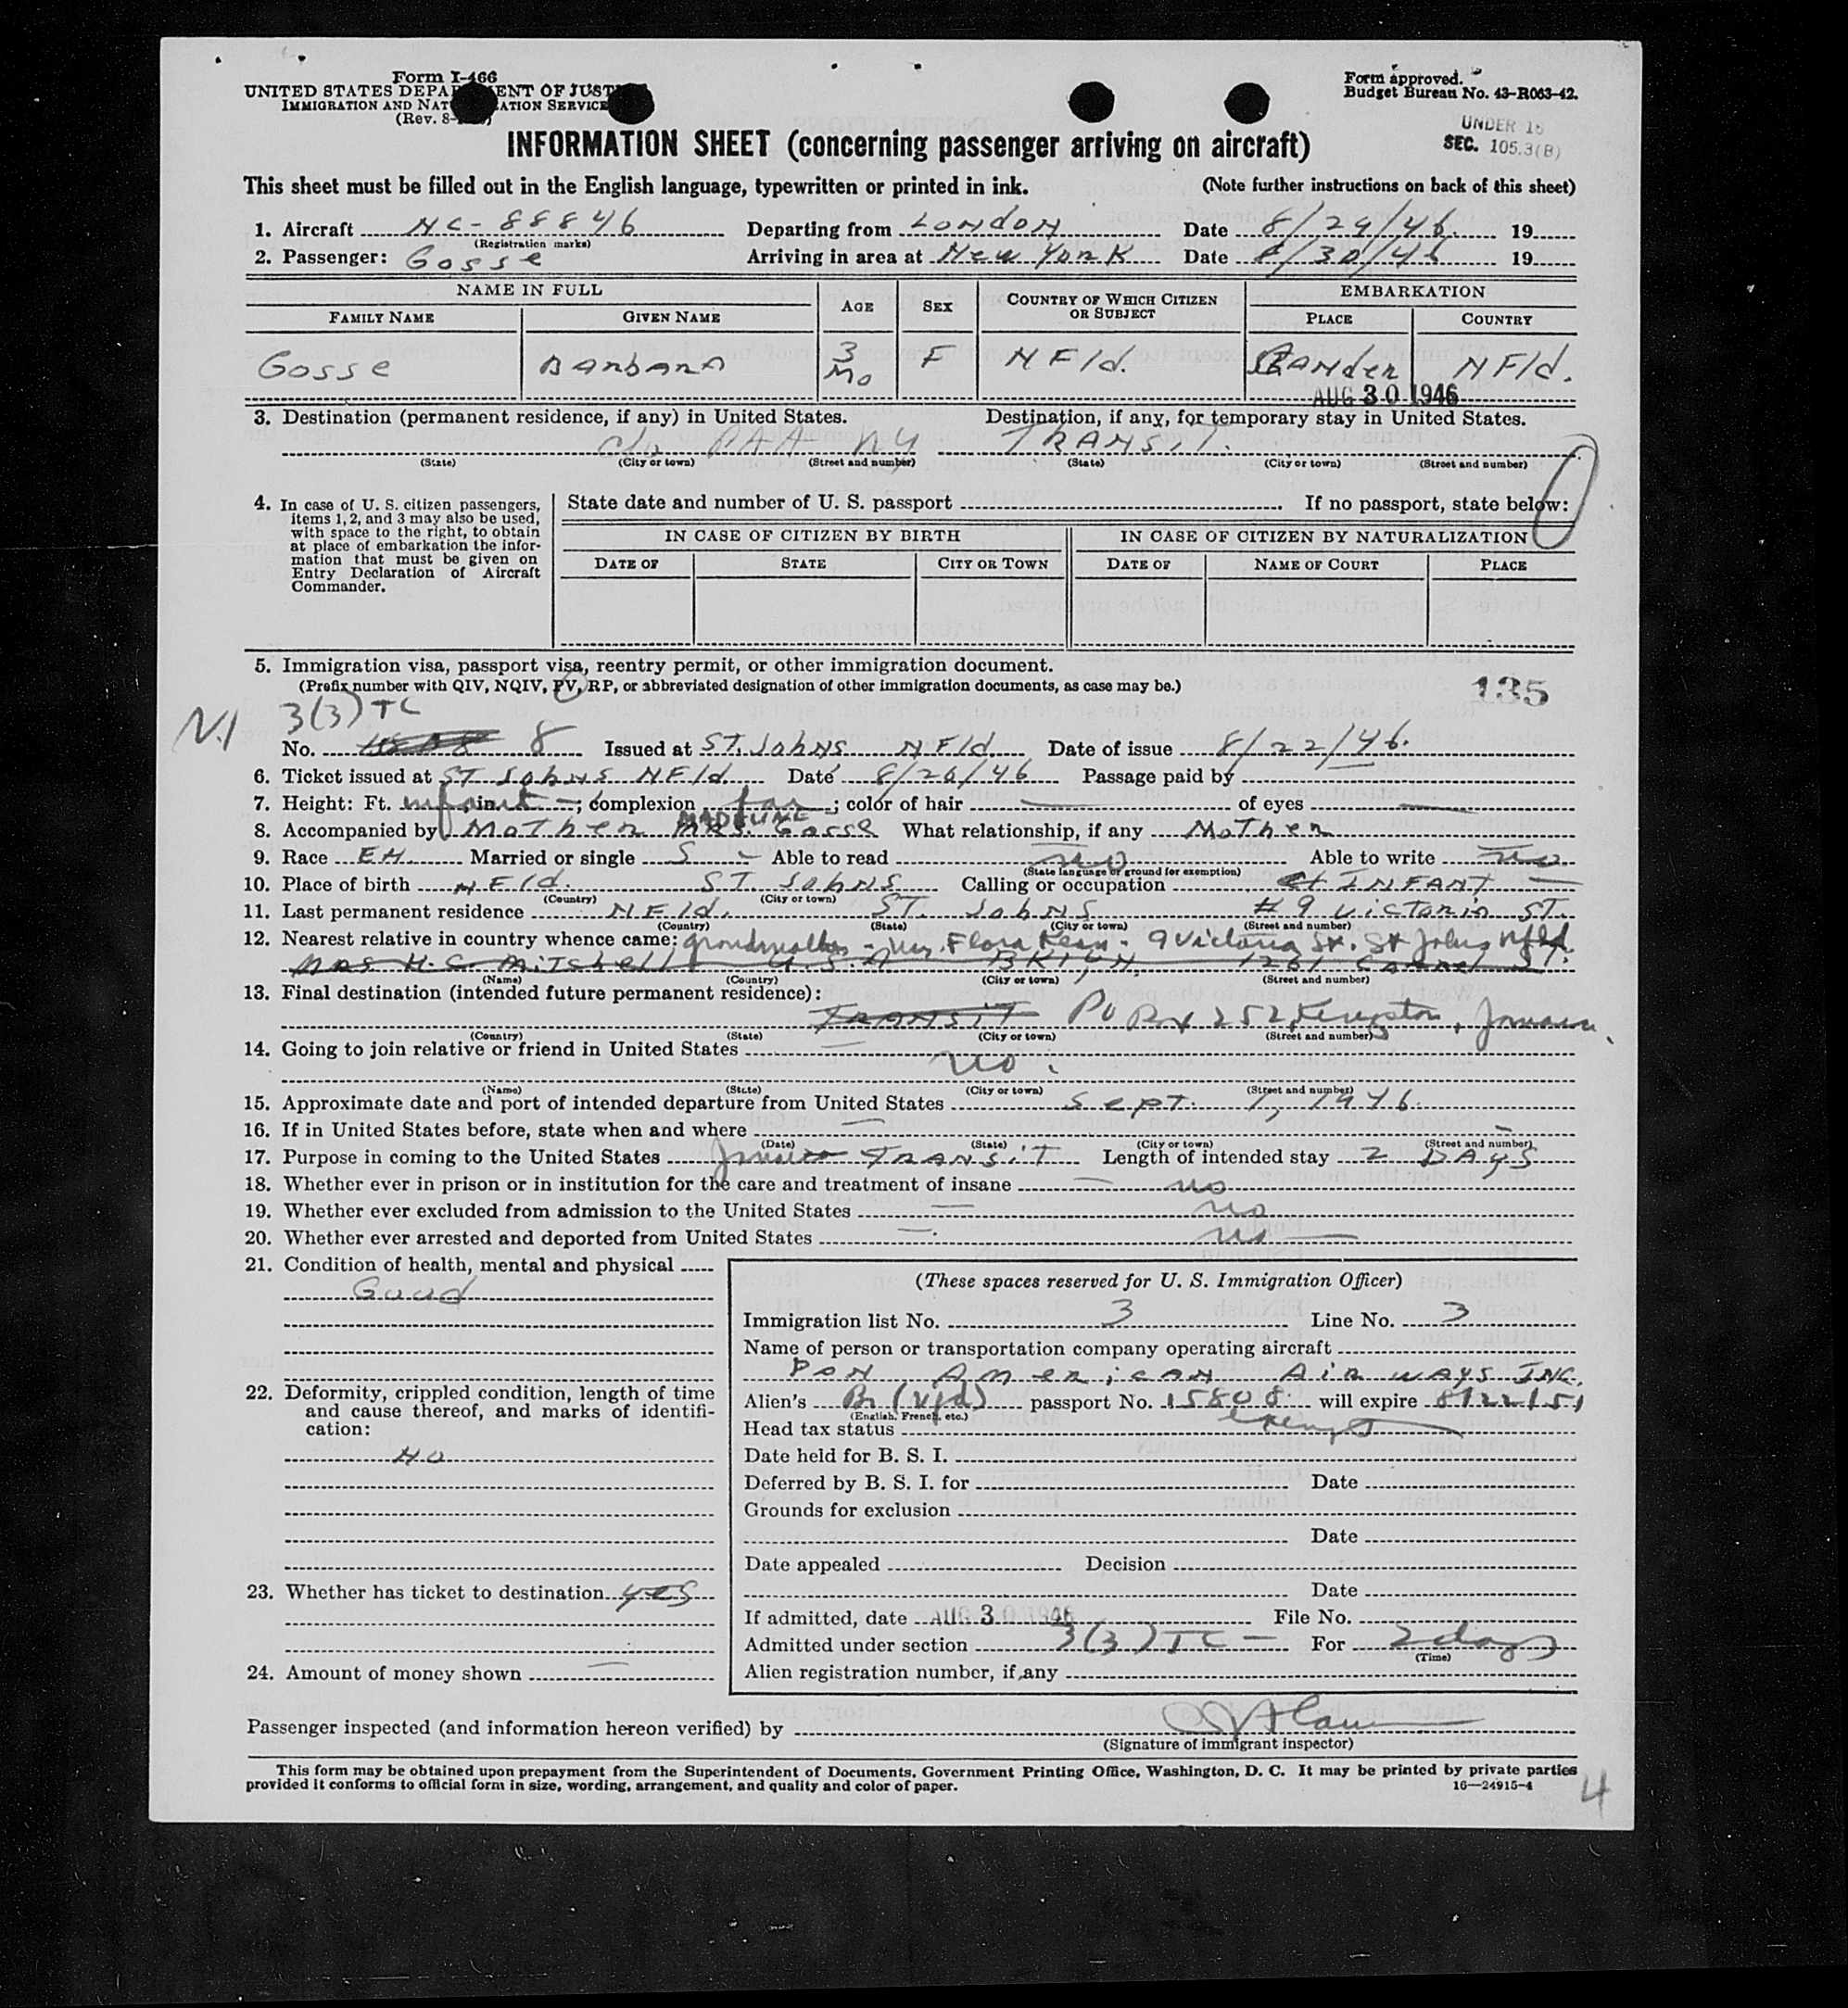 Form I-466
UNITED STATES DEPA ENT OF JUST
IMMIGRATION AND NAT ATION SERVICE
(Rev. 8-
Form approved.
Budget Bureau No. 43-R063-42.
UNDER 16
SEC. 105.3(B)
INFORMATION SHEET (concerning passenger arriving on aircraft)
This sheet must be filled out in the English language, typewritten or printed in ink. (Note further instructions on back of this sheet)
1. Aircraft NC-88846 Departing from LONDON Date 8/29/46. 19
(Registration marks)
2. Passenger: Gosse Arriving in area at New York Date 8/30/46 19
NAME IN FULL AGE SEX COUNTRY OF WHICH CITIZEN OR SUBJECT EMBARKATION
FAMILY NAME GIVEN NAME PLACE COUNTRY
Gosse Barbara 3 Mo F NFld. Gander NFld.
AUG 30 1946
3. Destination (permanent residence, if any) in United States. Destination, if any, for temporary stay in United States.
c/o PAA NY TRANSIT.
(State) (City or town) (Street and number) (State) (City or town) (Street and number)
4. In case of U. S. citizen passengers, items 1, 2, and 3 may also be used, with space to the right, to obtain at place of embarkation the information that must be given on Entry Declaration of Aircraft Commander.
State date and number of U. S. passport If no passport, state below:
IN CASE OF CITIZEN BY BIRTH IN CASE OF CITIZEN BY NATURALIZATION
DATE OF STATE CITY OR TOWN DATE OF NAME OF COURT PLACE
5. Immigration visa, passport visa, reentry permit, or other immigration document.
(Prefix number with QIV, NQIV, PV, RP, or abbreviated designation of other immigration documents, as case may be.) 135
N.I 3(3) TC
No. 8 Issued at ST. Johns NFld Date of issue 8/22/46.
6. Ticket issued at ST Johns NFld Date 8/26/46 Passage paid by
7. Height: Ft. infant in. ; complexion fair ; color of hair of eyes
MADELINE
8. Accompanied by Mother Mrs. Gosse What relationship, if any Mother
9. Race EH. Married or single S Able to read no Able to write no
(State language or ground for exemption)
10. Place of birth NFld. ST. Johns Calling or occupation INFANT
(Country) (City or town)
11. Last permanent residence NFld. ST. Johns # 9 Victoria ST.
(Country) (State) (City or town) (Street and number)
12. Nearest relative in country whence came: grandmother - Mrs. Flora Kean - 9 Victoria St. St Johns Nfld.
Mrs H.C. Mitchell U.S.A BKLYN, 1261 ST.
(Name) (Country) (City or town) (Street and number)
13. Final destination (intended future permanent residence):
TRANSIT PO Box 252, Kingston, Jamaica.
(Country) (State) (City or town) (Street and number)
14. Going to join relative or friend in United States
no.
(Name) (State) (City or town) (Street and number)
15. Approximate date and port of intended departure from United States Sept. 1, 1946.
16. If in United States before, state when and where
(Date) (State) (City or town) (Street and number)
17. Purpose in coming to the United States TRANSIT Length of intended stay 2 DAYS
18. Whether ever in prison or in institution for the care and treatment of insane no
19. Whether ever excluded from admission to the United States no
20. Whether ever arrested and deported from United States no
21. Condition of health, mental and physical
Good
22. Deformity, crippled condition, length of time and cause thereof, and marks of identification:
NO
23. Whether has ticket to destination yes
24. Amount of money shown
(These spaces reserved for U. S. Immigration Officer)
Immigration list No. 3 Line No. 3
Name of person or transportation company operating aircraft
Pan American Airways INC.
Alien's Br (Nfd) passport No. 15808 will expire 8/22/51
(English, French, etc.)
Head tax status exempt
Date held for B. S. I.
Deferred by B. S. I. for Date
Grounds for exclusion
Date
Date appealed Decision
Date
If admitted, date AUG 30 1946 File No.
Admitted under section 3(3)TC For 2 days
(Time)
Alien registration number, if any
Passenger inspected (and information hereon verified) by
(Signature of immigrant inspector)
This form may be obtained upon prepayment from the Superintendent of Documents, Government Printing Office, Washington, D. C. It may be printed by private parties
provided it conforms to official form in size, wording, arrangement, and quality and color of paper. 16—24915-4
4